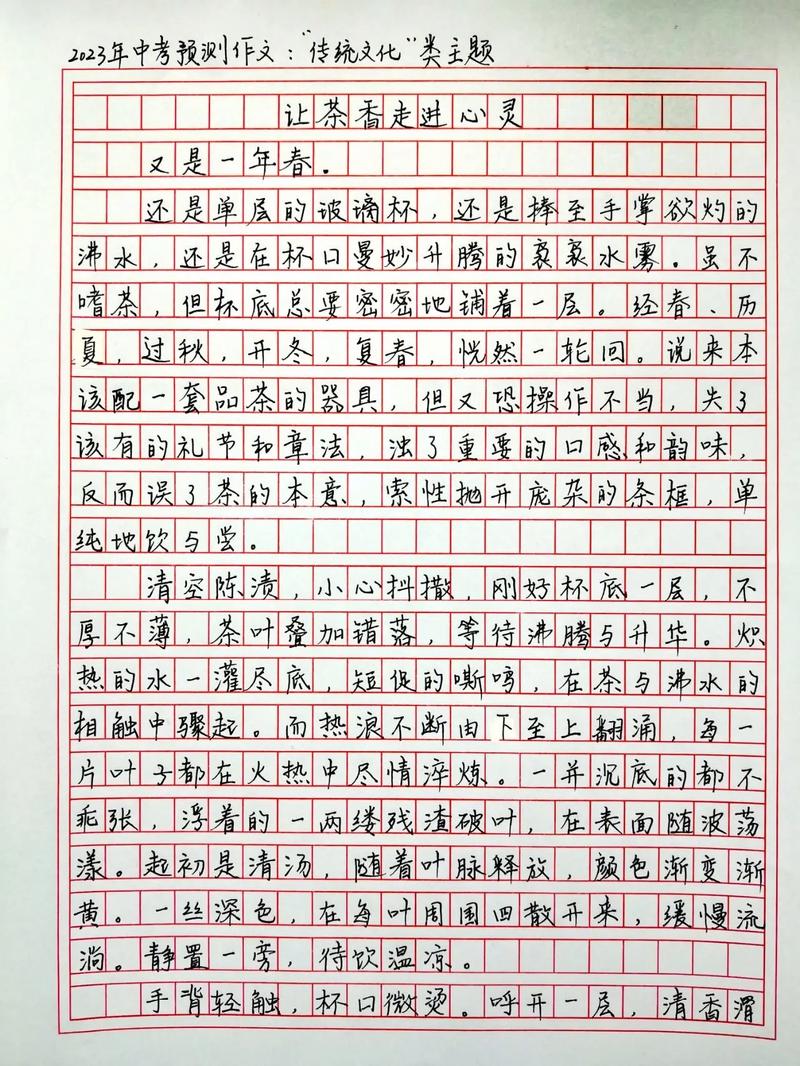 2023年中考预测作文："传统文化"类主题
让茶香走进心灵
又是一年春。
还是单层的玻璃杯，还是捧至手掌欲灼的
沸水，还是在杯口曼妙升腾的袅袅水雾。虽不
嗜茶，但杯底总要密密地铺着一层。经春、历
夏，过秋，开冬，复春，恍然一轮回。说来本
该配一套品茶的器具，但又恐操作不当，失了
该有的礼节和章法，浊了重要的口感和韵味，
反而误了茶的本意，索性抛开庞杂的条框，单
纯地饮与尝。
清空陈渍，小心抖撒，刚好杯底一层，不
厚不薄，茶叶叠加错落，等待沸腾与升华。炽
热的水一灌尽底，短促的嘶鸣，在茶与沸水的
相触中骤起。而热浪不断由下至上翻涌，每一
片叶子都在火热中尽情淬炼。一并沉底的都不
乖张，浮着的一两缕残渣破叶，在表面随波荡
漾。起初是清汤，随着叶脉释放，颜色渐变渐
黄。一丝深色，在每叶周围四散开来，缓慢流
淌。静置一旁，待饮温凉。
手背轻触，杯口微烫。呼开一层，清香滑